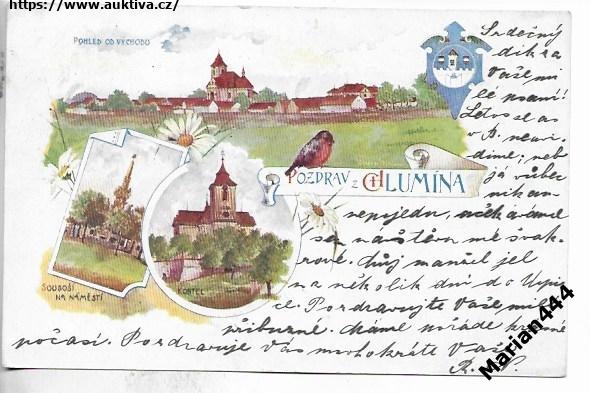 https://www.auktiva.cz/
POHLED OD VÝCHODU
POZDRAV z CHLUMÍNA
SOUSOŠÍ
NA NÁMĚSTÍ
KOSTEL
Srdečný
dík za
Vaše mi
lé psaní!
Letos se as
v A. neuvi
díme; neb
já vůbec
nikam
nepojedu, však máme
se návštěvu mé švak-
rové. Můj manžel jel
na několik dní do Upice.
Pozdravujte Vaše milé
příbuzné. Máme pořáde krásné
počasí. Pozdravuje Vás mnohokráte Vaše
R.
Marian444